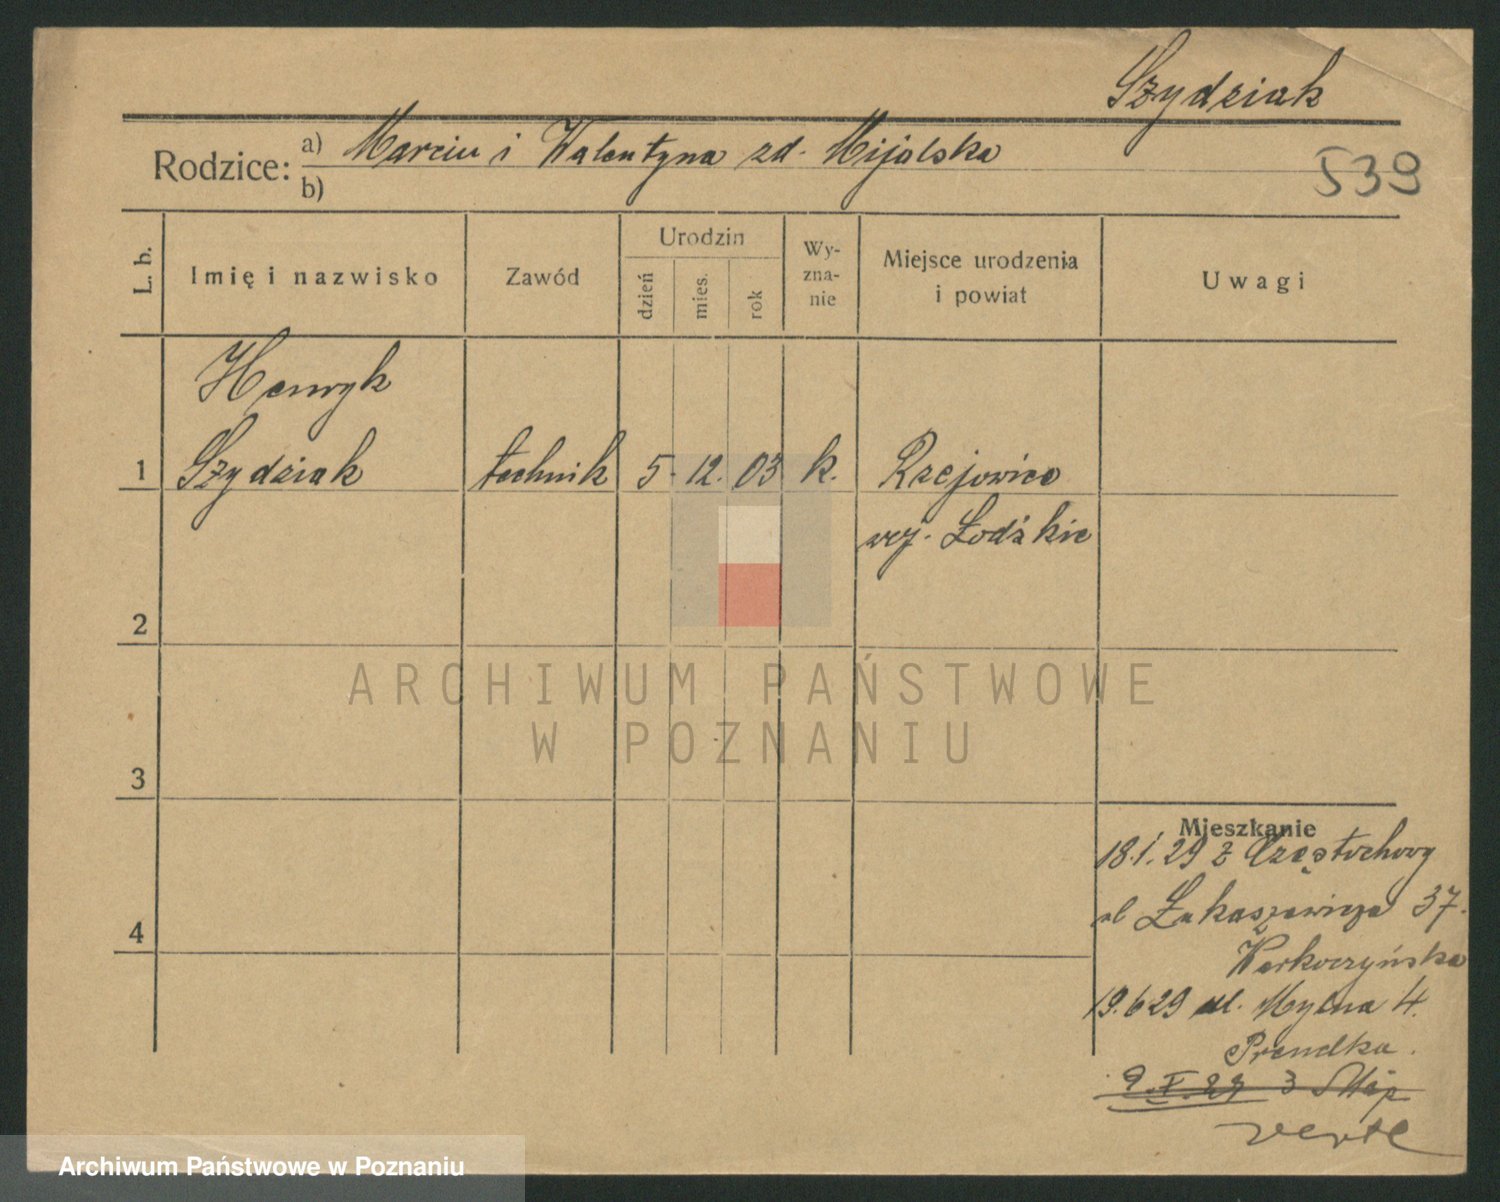 Szydziak
Rodzice: a) Marcin i Walentyna zd. Mijalska
b)
539
L. b.
Imię i nazwisko
Zawód
Urodzin
dzień
mies.
rok
Wy-
zna-
nie
Miejsce urodzenia
i powiat
Uwagi
Henryk
1 Szydziak technik 5. 12. 03 k. Rzejowice
woj. Łódzkie
2
ARCHIWUM PAŃSTWOWE
W POZNANIU
3
Mieszkanie
18.1.29 z Częstochowy
ul Łukaszewicza 37.
4
Werkoczyńska
19.6 29 ul. Mylna 4.
Prendka.
verte
Archiwum Państwowe w Poznaniu